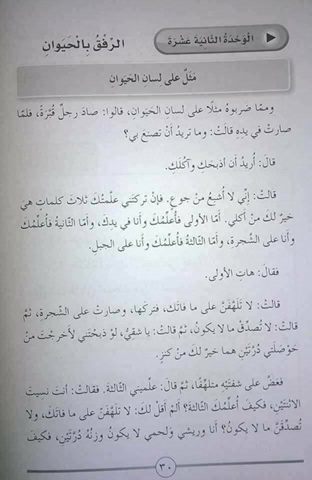 الوَحْدَةُ الثَّانِيَةَ عَشْرَةَ
الرِّفْقُ بِالْحَيَوانِ
مَثَلٌ على لسانِ الحَيَوانِ
وممَّا ضربوهُ مثلًا على لسانِ الحَيَوانِ، قالوا: صادَ رجلٌ قُبَّرَةً، فلمَّا
صارتْ في يدِهِ قالتْ: وما تريدُ أنْ تصنعَ بي؟
قالَ: أُريدُ أن أذبحَكِ وآكُلَكِ.
قالتْ: إنِّي لا أُشبِعُ منْ جوعٍ. فإنْ تركتَني علَّمتُكَ ثلاثَ كلماتٍ هيَ
خيرٌ لكَ منْ أكلي. أمَّا الأولى فأُعلِّمُكَ وأنا في يدِكَ، وأمَّا الثَّانيةُ فأُعلِّمُكَ
وأنا على الشَّجرةِ، وأمَّا الثَّالثةُ فأُعلِّمُكَ وأنا على الجبلِ.
فقالَ: هاتِ الأولى.
قالتْ: لا تلهَّفَنَّ على ما فاتَكَ، فتركَها، وصارتْ على الشَّجرةِ، ثمَّ
قالتْ: لا تُصدِّقْ ما لا يكونُ، ثمَّ قالتْ: يا شقيُّ، لوْ ذبحْتَني لأخرجْتَ منْ
حَوْصَلَتي دُرَّتَيْنِ هما خيرٌ لكَ منْ كنزٍ.
فعضَّ على شفتَيْهِ متلهِّفًا، ثمَّ قالَ: علِّميني الثَّالثةَ. فقالتْ: أنتَ نسيتَ
الاثنتَيْنِ، فكيفَ أُعلِّمُكَ الثَّالثةَ؟ ألمْ أقلْ لكَ: لا تلهَّفَنَّ على ما فاتَكَ، ولا
تُصدِّقَنَّ ما لا يكونُ؟ أنا وريشي ولحمي لا يكونُ وزنُهُ دُرَّتَيْنِ، فكيفَ
٣٠